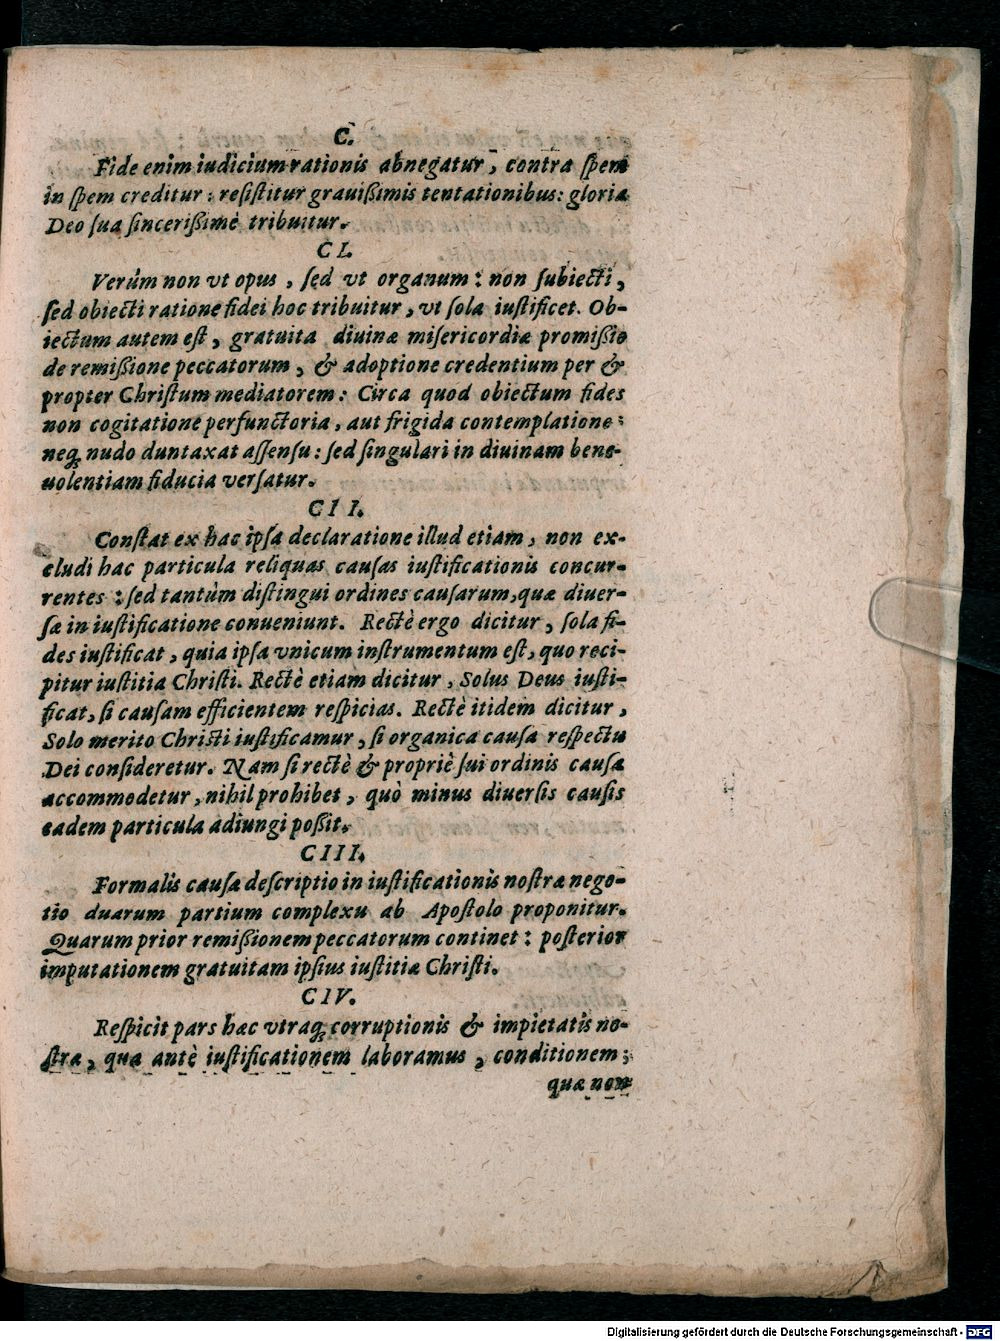 C.
Fide enim iudicium rationis abnegatur, contra spem
in spem creditur: resistitur grauißimis tentationibus: gloria
Deo sua sincerißimè tribuitur.
CI.
Verùm non vt opus, sed vt organum: non subiecti,
sed obiecti ratione fidei hoc tribuitur, vt sola iustificet. Ob-
iectum autem est, gratuita diuinæ misericordiæ promißio
de remißione peccatorum, & adoptione credentium per &
propter Christum mediatorem: Circa quod obiectum fides
non cogitatione perfunctoria, aut frigida contemplatione:
neq; nudo duntaxat assensu: sed singulari in diuinam bene-
uolentiam fiducia versatur.
CII.
Constat ex hac ipsa declaratione illud etiam, non ex-
cludi hac particula reliquas causas iustificationis concur-
rentes: sed tantùm distingui ordines causarum, quæ diuer-
sæ in iustificatione conueniunt. Rectè ergo dicitur, sola fi-
des iustificat, quia ipsa vnicum instrumentum est, quo reci-
pitur iustitia Christi. Rectè etiam dicitur, Solus Deus iusti-
ficat, si causam efficientem respicias. Rectè itidem dicitur,
Solo merito Christi iustificamur, si organica causa respectu
Dei consideretur. Nam si rectè & propriè sui ordinis causæ
accommodetur, nihil prohibet, quò minus diuersis causis
eadem particula adiungi poßit.
CIII.
Formalis causæ descriptio in iustificationis nostræ nego-
tio duarum partium complexu ab Apostolo proponitur.
Quarum prior remißionem peccatorum continet: posterior
imputationem gratuitam ipsius iustitiæ Christi.
CIV.
Respicit pars hæc vtraq; corruptionis & impietatis no-
stræ, qua antè iustificationem laboramus, conditionem;
quæ non
Digitalisierung gefördert durch die Deutsche Forschungsgemeinschaft - DFG